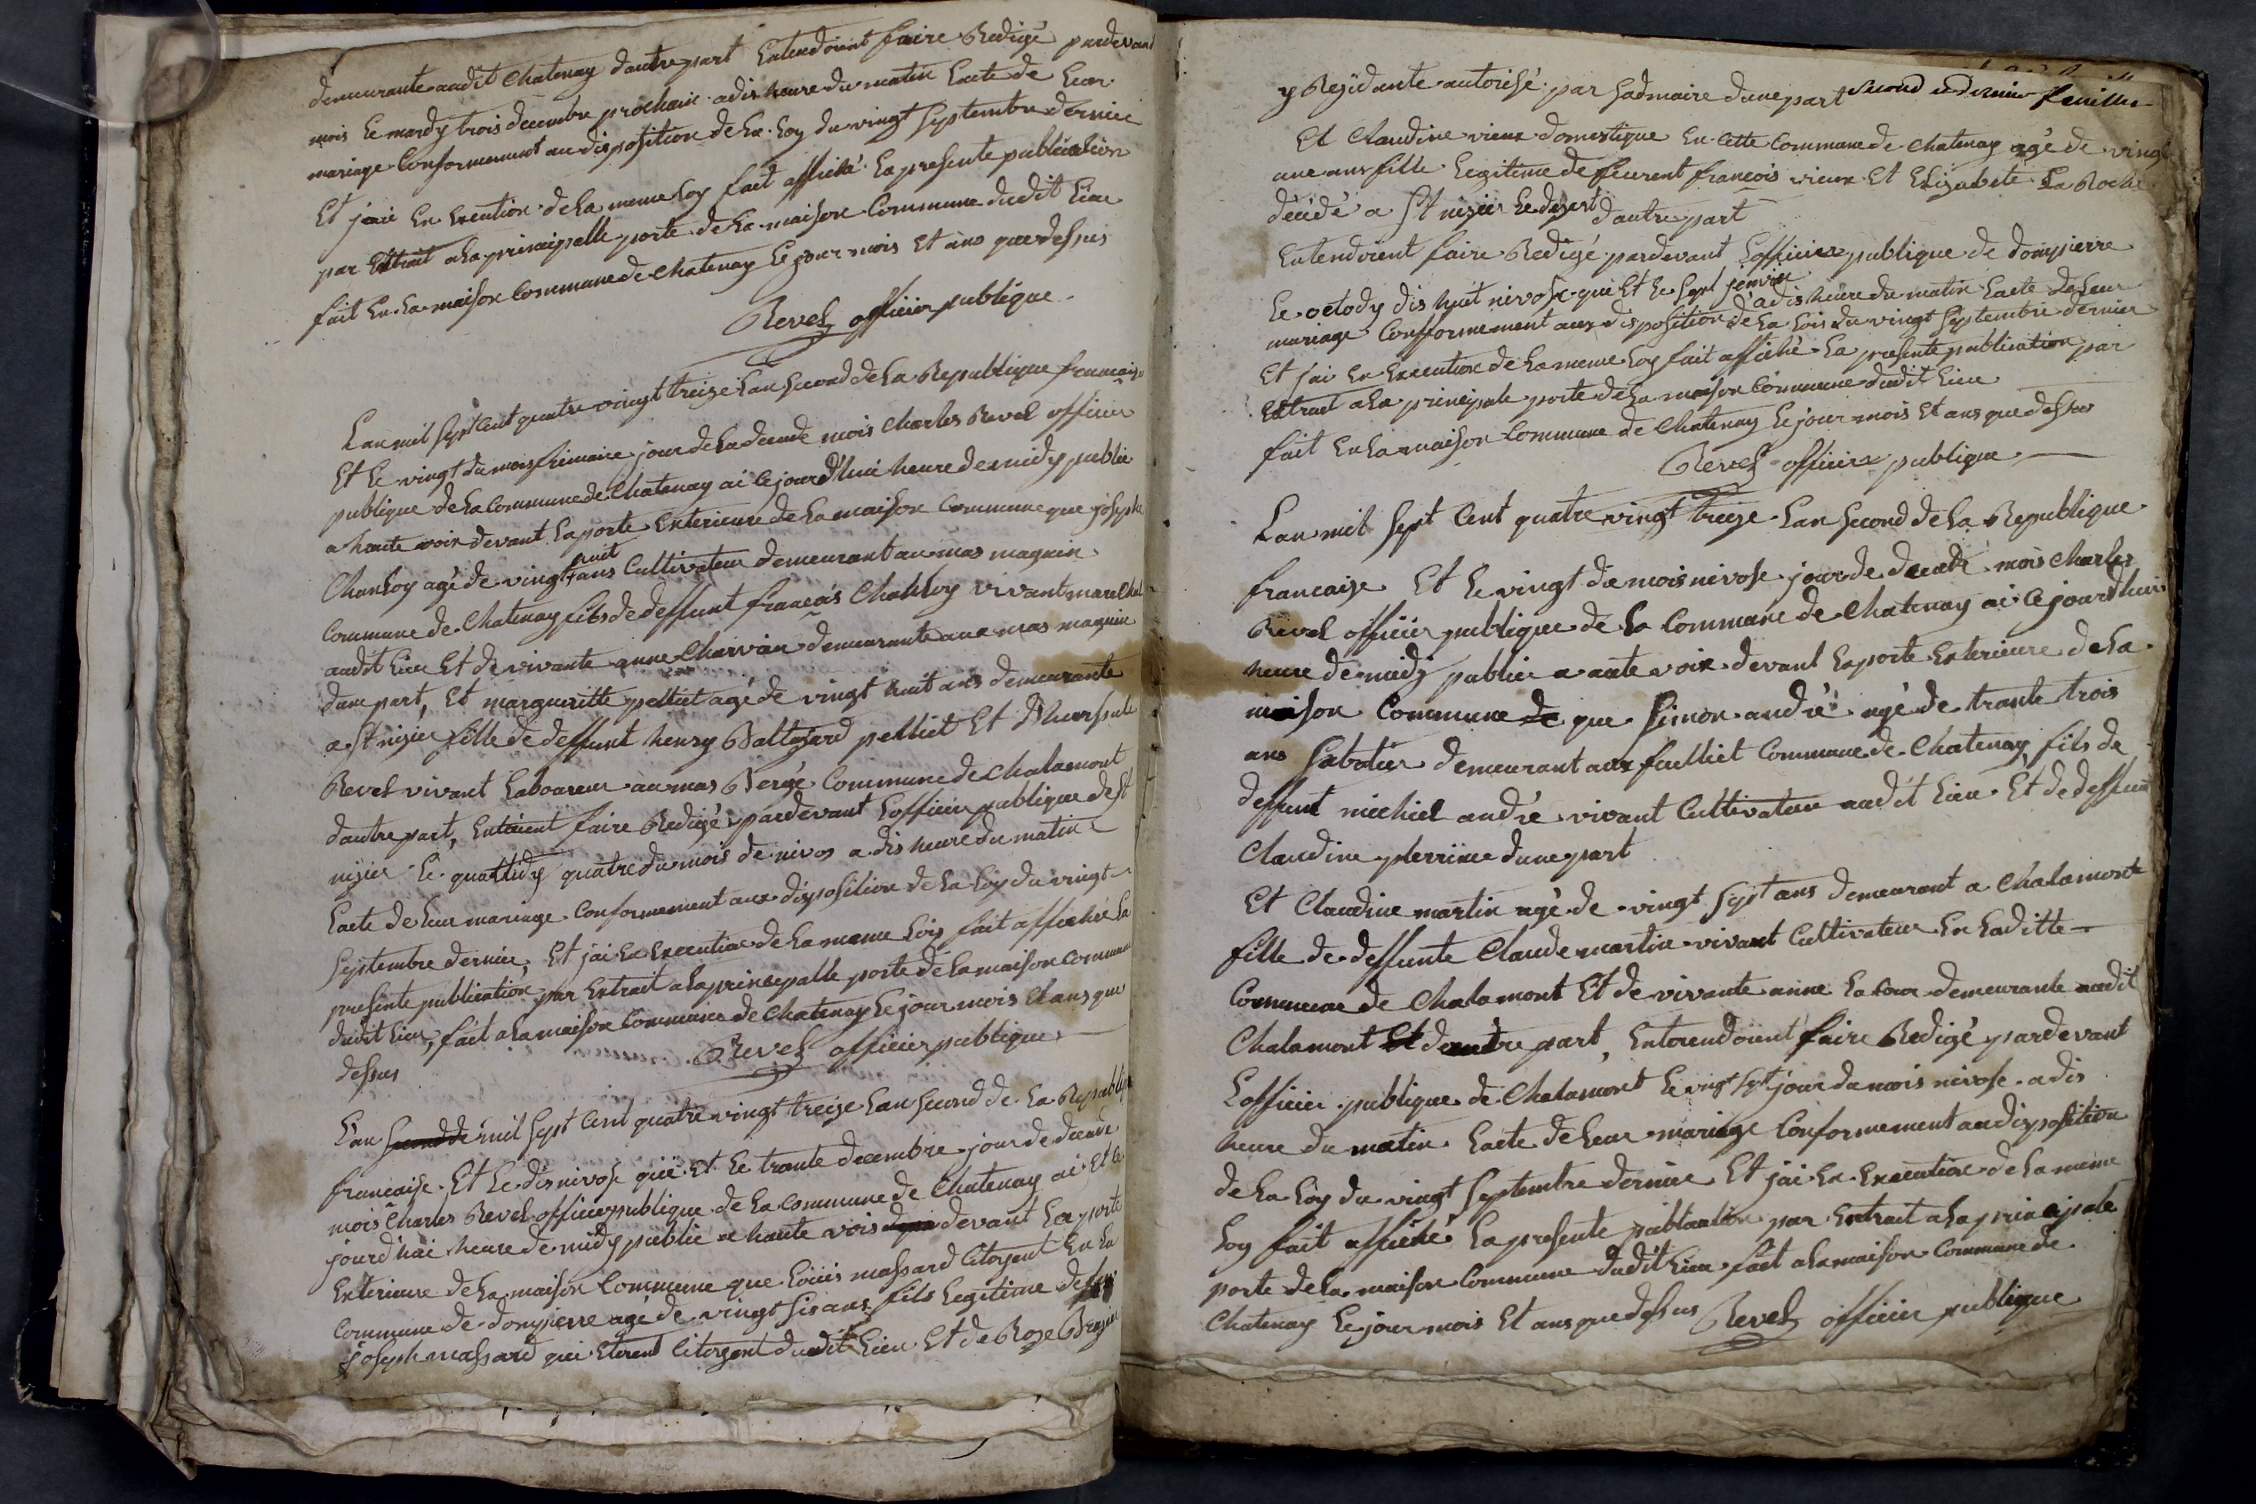 demeurante audit Chatenay dautre part Entendoint faire Redigé pardevant
mois le mardy trois decembre prochaine a dix heure du matin Lacte de Leur
mariage Conformement au disposition de La Loy du vingt septembre dernier
Et jai En Exention de La meme Loy fait affiché La presente publication
par Extrait a La principalle porte de La maison Commune dudit Lieu
fait En La maison Commune de Chatenay Le jour mois Et ans que dessus
Revel officier publique
Lan mil sept Cent quatre vingt treize Lan second de La Republique francaise
Et le vingt du mois frimaire jour de La decade mois Charles Revel officier
publique de La Commune de Chatenay ai Cejourd'hui heure de midy publie
a haute voix devant La porte Exterieure de La maison Commune que joseph
Chanloy agé de vingt huit ans Cultivateur demeurant au mas magnin
Commune de Chatenay fils de deffunt francois Chanloy vivant marechal
audit Lieu Et de vivante anne Charvin demeurante aux mas magnin
dune part, Et margueritte pelliet agé de vingt huit ans demeurante
a St nizier fille de deffunt henry Baltazard pelliet Et
Revel vivant Laboureur au mas Bergé Commune de Chalamont
dautre part, Entament faire Redigé pardevant Lofficier publique de St
nizier le quartidy quatre du mois de nivos a dis heure du matin
Lacte de Leur mariage Conformement aux disposition de La Loy du vingt
septembre dernier, Et jai En Execution de La meme Lois fait affiché La
presente publication par Extrait a La principalle porte de La maison Commune
dudit Lieu, fait a La maison Commune de Chatenay Le jour mois Et ans que
dessus Revel officier publique
L'an second de mil sept Cent quatre vingt treize Lan second de La Republique
francaise Et le dis nivose qui Et le trante decembre jour de decade
mois Charles Revel officier publique de La Commune de Chatenay ai Et Ce
jourd'hui heure de midy publie a haute vois devant La porte
Exterieure de La maison Commune que Louis massard Citoyent En La
Commune de dompierre agé de vingt sis ans fils Legitime de feu
joseph massard qui Etoient Citoyent dudit Lieu Et de Roze
y Residante autorisé par sadmaire dune part second et dernier feuillet
Et Claudine vieux domestique En Cette Commune de Chatenay agé de vingt
une ans fille Legitime de feurent francois vieux Et Elizabete La Roche
décédé a St nizier Le desert dautre part
Entendoient faire Redigé pardevant Lofficier publique de dompierre
le octody dis huit nivose qui Et le sept jenvier a dis heure du matin Lacte de Leur
mariage Confformement aux disposition de La Lois du vingt septembre dernier
Et jai En Execution de La meme Loy fait affiché La presente publication par
Extrait a La principale porte de La maison Commune dudit Lieu
fait En La maison Commune de Chatenay Le jour mois Et ans que dessus
Revel officier publique
Lan mil sept Cent quatre vingt treize Lan second de La Republique
francaise Et le vingt du mois nivose jour de decade mois Charles
Revel officier publique de La Commune de Chatenay ai Cejourd'hui
heure de midy publie a aute voix devant La porte Exterieure de La
maison Commune de que Simon andré agé de trante trois
ans sabotier demeurant aux fuelliet Commune de Chatenay fils de
deffunt michiel andré vivant Cultivateur audit Lieu Et de deffunt
Claudine perrine dune part
Et Claudine martin agé de vingt sept ans demeurant a Chalamont
fille de deffunte Claude martin vivant Cultivateur En Laditte
Commune de Chalamont Et de vivante anne La Cour demeurante audit
Chalamont Et dautre part, Entorendoient faire Redigé pardevant
Lofficier publique de Chalamont le vingt sept jour du mois nivose a dis
heure du matin Lacte de Leur mariage Conformement au disposition
de La Loy du vingt septembre dernier Et jai En Execution de La meme
Loy fait affiché La presente publication par Extrait a La principale
porte de La maison Commune dudit Lieu fait a La maison Commune de
Chatenay Le jour mois Et ans que dessus Revel officier publique